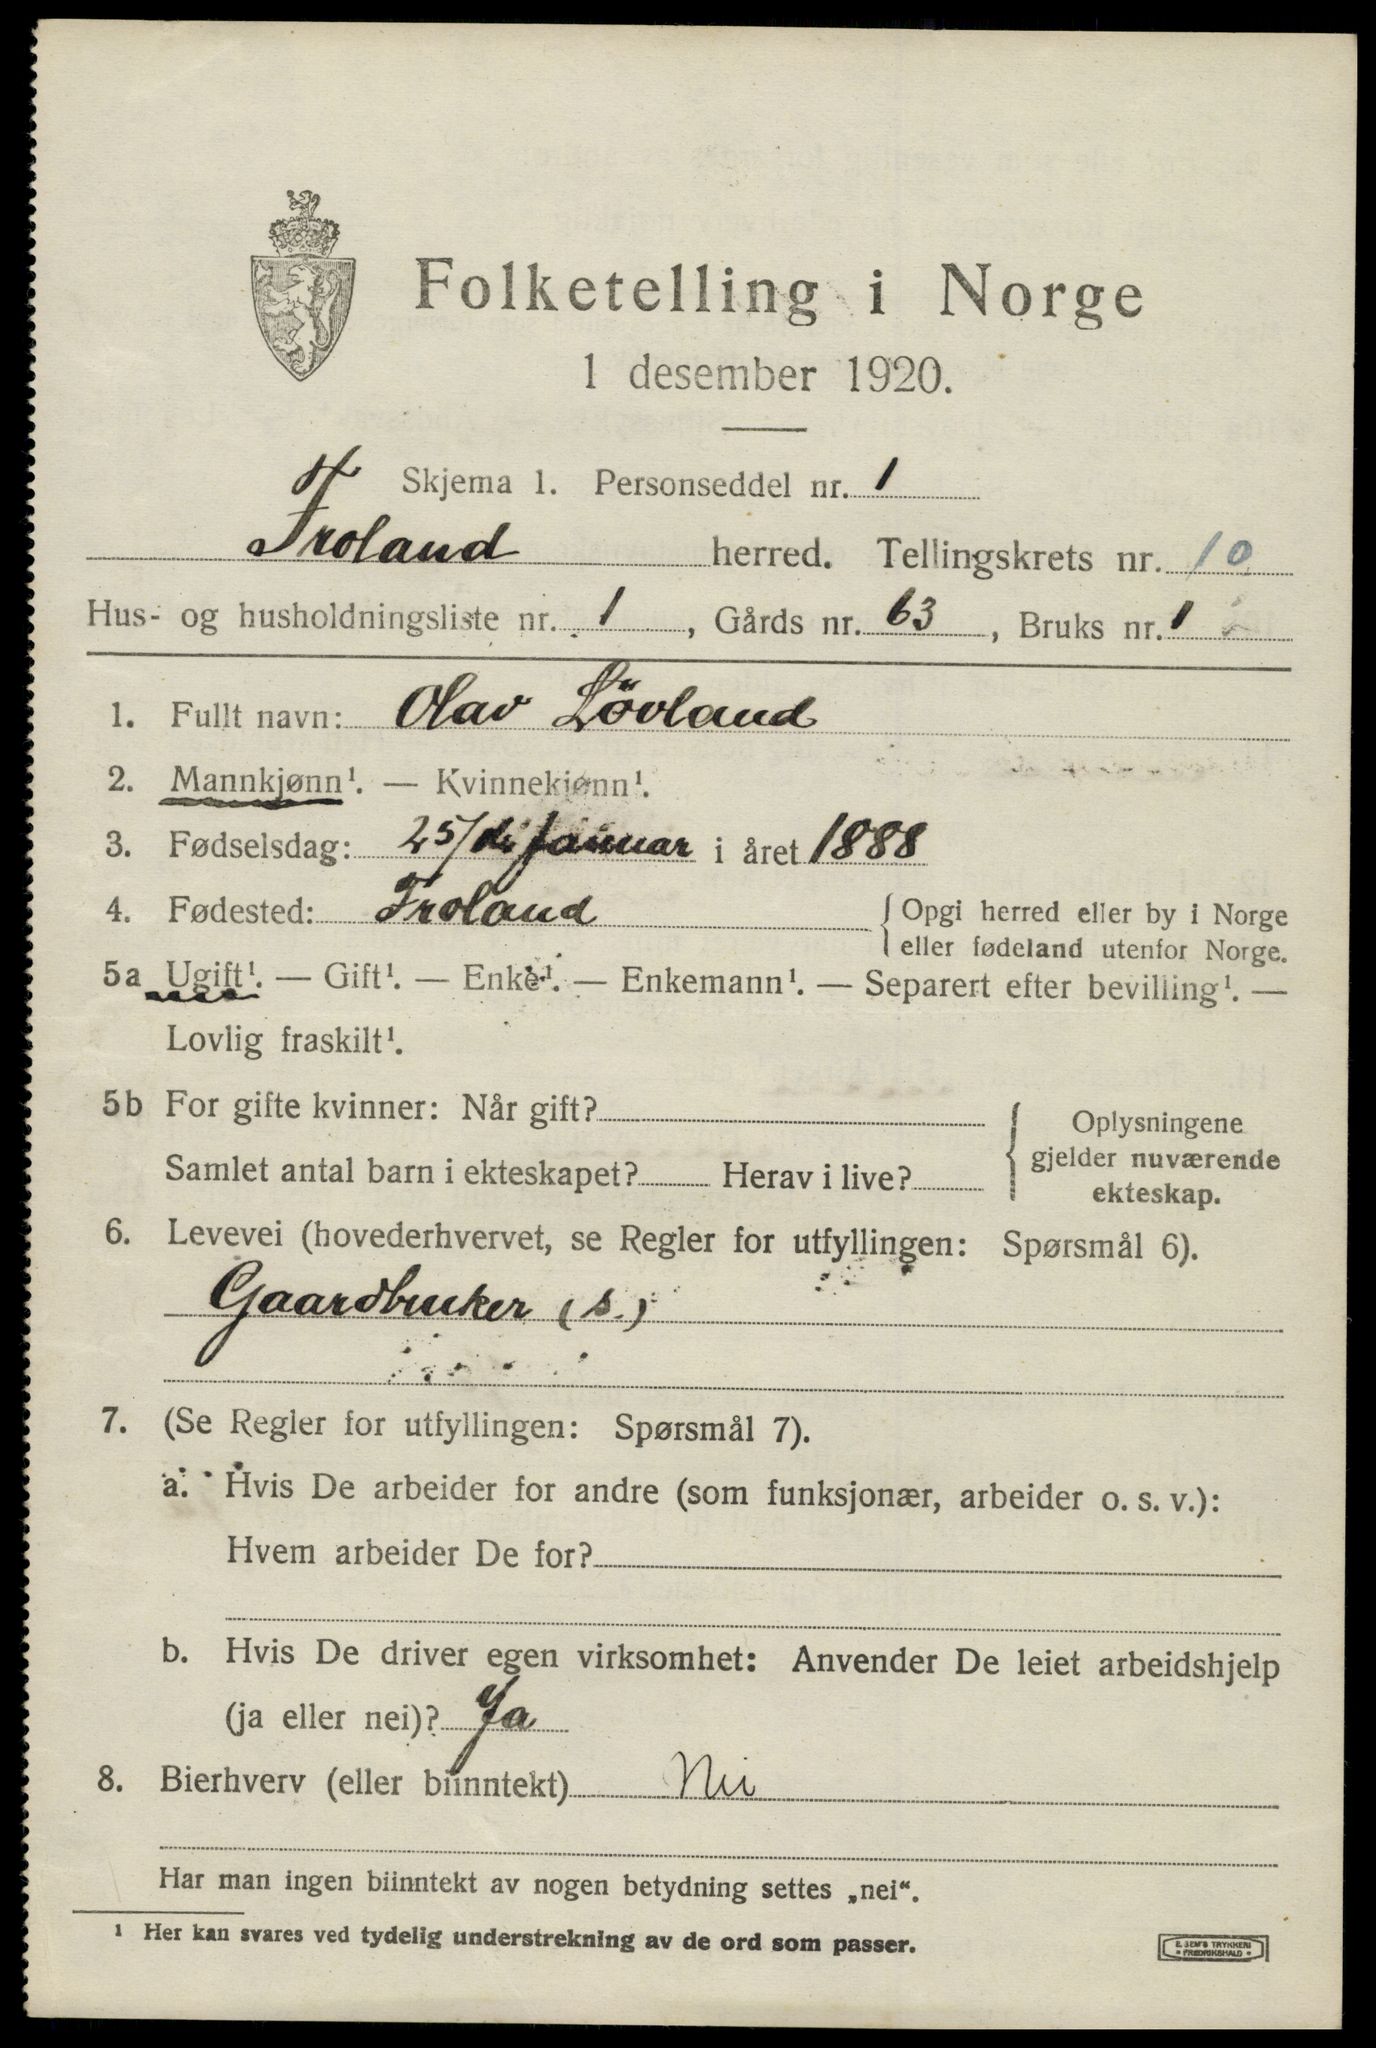 Folketelling i Norge
1 desember 1920.
Skjema 1. Personseddel nr. 1
Froland herred. Tellingskrets nr. 10
Hus- og husholdningsliste nr. 1, Gårds nr. 63, Bruks nr. 1
1. Fullt navn: Olav Lövland
2. Mannkjønn¹. — Kvinnekjønn¹.
3. Fødselsdag: 25/de januar i året 1888
4. Fødested: Froland { Opgi herred eller by i Norge
eller fødeland utenfor Norge.
5a Ugift¹. — Gift¹. — Enke¹. — Enkemann¹. — Separert efter bevilling¹. —
Lovlig fraskilt¹.
5b For gifte kvinner: Når gift? { Oplysningene
gjelder nuværende
ekteskap.
Samlet antal barn i ekteskapet? Herav i live?
6. Levevei (hovederhvervet, se Regler for utfyllingen: Spørsmål 6).
Gaardbruker (s.)
7. (Se Regler for utfyllingen: Spørsmål 7).
a. Hvis De arbeider for andre (som funksjonær, arbeider o. s. v.):
Hvem arbeider De for?
b. Hvis De driver egen virksomhet: Anvender De leiet arbeidshjelp
(ja eller nei)? Ja
8. Bierhverv (eller biinntekt) Nei
Har man ingen biinntekt av nogen betydning settes „nei“.
¹ Her kan svares ved tydelig understrekning av de ord som passer.
E. SEM'S TRYKKERI
• FREDRIKSHALD •